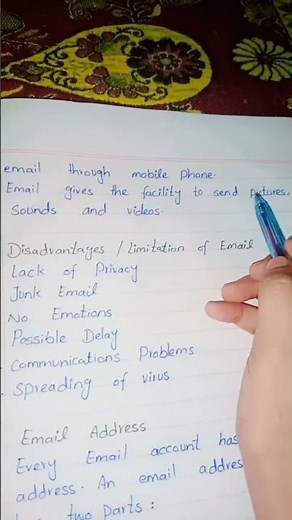 email through mobile phone.
Email gives the facility to send pictures.
Sounds and videos.
Disadvantages / Limitation of Email
Lack of Privacy
Junk Email
No Emotions
Possible Delay
Communications Problems
Spreading of virus
Email Address
Every Email account has
address. An email addres
two parts :